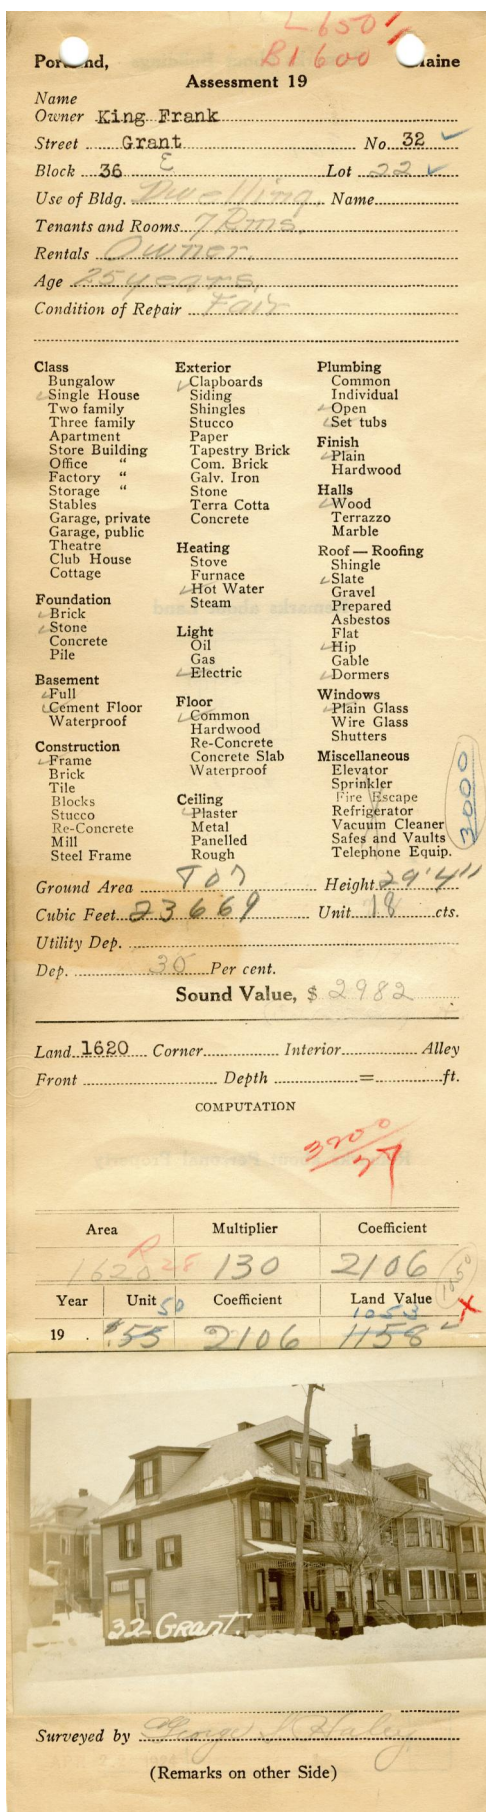 L 650
B 1600
Portland, Maine
Assessment 19
Name
Owner King Frank
Street Grant No. 32
Block 36 E Lot 22
Use of Bldg. Dwelling. Name
Tenants and Rooms 7 Rms.
Rentals Owner.
Age 25 years.
Condition of Repair Fair
Class
Bungalow
Single House
Two family
Three family
Apartment
Store Building
Office "
Factory "
Storage "
Stables
Garage, private
Garage, public
Theatre
Club House
Cottage
Foundation
Brick
Stone
Concrete
Pile
Basement
Full
Cement Floor
Waterproof
Construction
Frame
Brick
Tile
Blocks
Stucco
Re-Concrete
Mill
Steel Frame
Exterior
Clapboards
Siding
Shingles
Stucco
Paper
Tapestry Brick
Com. Brick
Galv. Iron
Stone
Terra Cotta
Concrete
Heating
Stove
Furnace
Hot Water
Steam
Light
Oil
Gas
Electric
Floor
Common
Hardwood
Re-Concrete
Concrete Slab
Waterproof
Ceiling
Plaster
Metal
Panelled
Rough
Plumbing
Common
Individual
Open
Set tubs
Finish
Plain
Hardwood
Halls
Wood
Terrazzo
Marble
Roof — Roofing
Shingle
Slate
Gravel
Prepared
Asbestos
Flat
Hip
Gable
Dormers
Windows
Plain Glass
Wire Glass
Shutters
Miscellaneous
Elevator
Sprinkler
Fire Escape
Refrigerator
Vacuum Cleaner
Safes and Vaults
Telephone Equip.
3000
Ground Area 807 Height 29'4"
Cubic Feet 23669 Unit 18 cts.
Utility Dep.
Dep. 30 Per cent.
Sound Value, $ 2982
Land 1620 Corner Interior Alley
Front Depth = ft.
COMPUTATION
3200
27
Area Multiplier Coefficient
1620 130 2106
1050
Year Unit Coefficient Land Value
50 1053
19 . $.55 2106 1158
32 GRANT.
Surveyed by George S Haley
(Remarks on other Side)